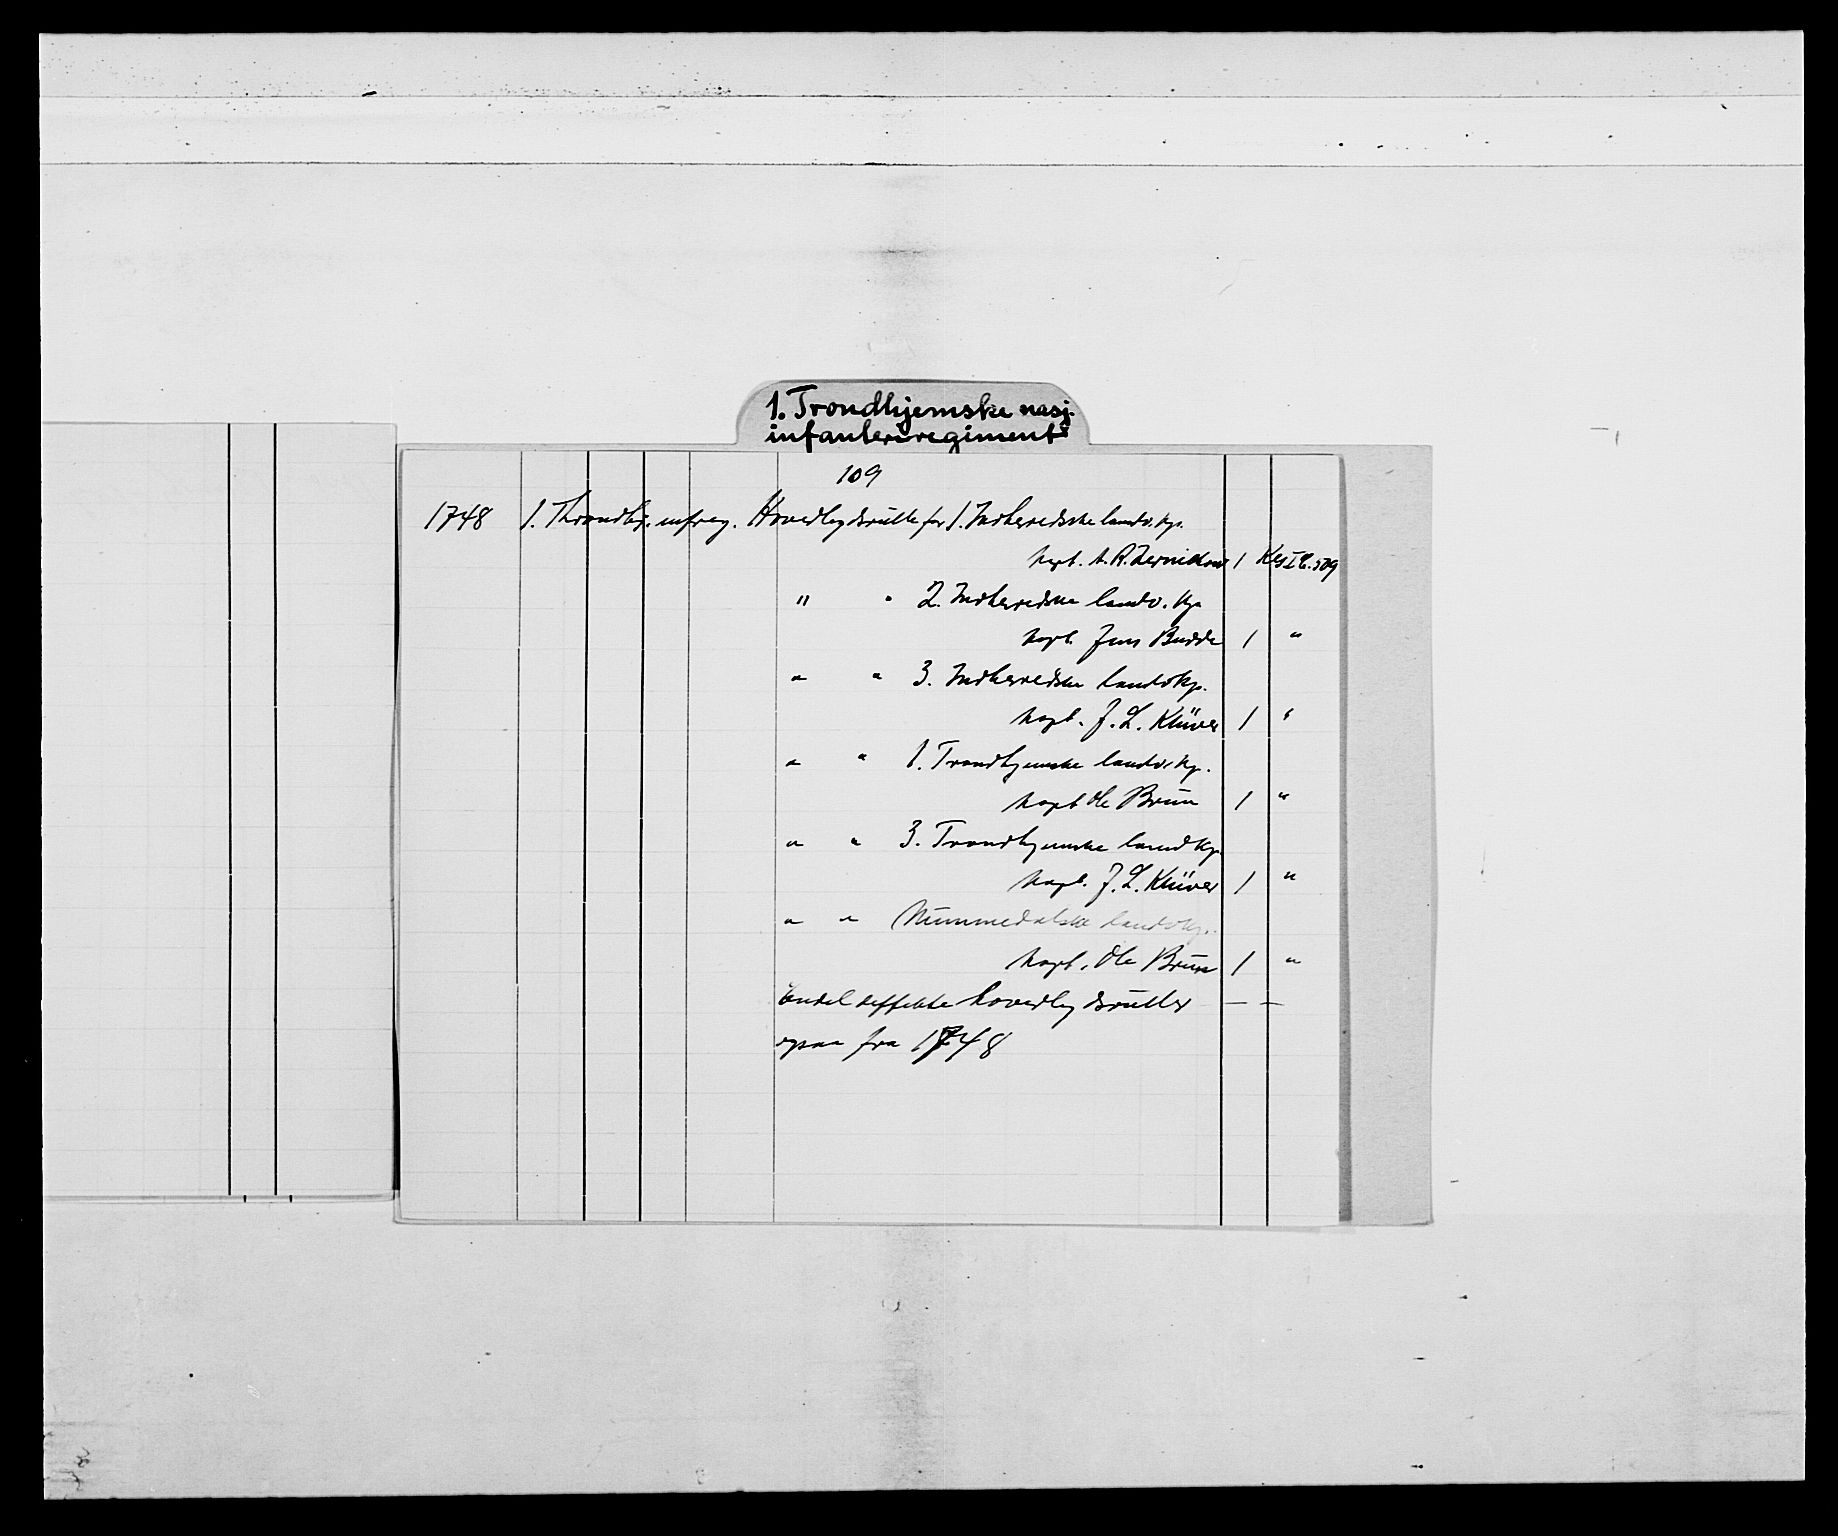 1. Trondhjemske nasj.
infanteriregiment
109
1748 1. Throndhj. infreg. Hovedlegdsrulle for 1. Indherredske landv. kp.
kapt. A. R. 1 Kcs I C. 509
" " 2. Indherredske landv. kp.
kapt. Jens Budde 1 "
" " 3. Indherredske landvkp.
kapt. J. L. Klüver 1 "
" " 1. Trondhjemske landv. kp.
kapt Ole Brun 1 "
" " 3. Trondhjemske landkp.
kapt. J. L. Klüver 1 "
" " Nummedalske landvkp.
kapt. Ole Brun 1 "
Endel deffekte hovedlegdsruller — —
fra 1748